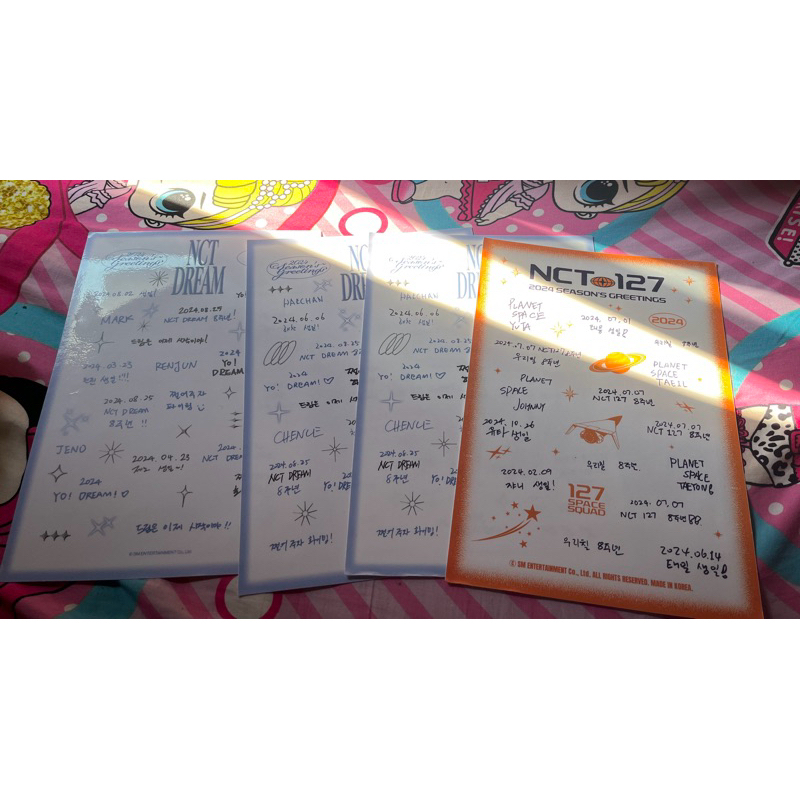 NCT
DREAM
Season's
Greetings
2024.08.02
MARK
2024.08.25
NCT DREAM 8주년!
드림은 이제 시작이야!
2024.03.23
런쥔 생일!!!
RENJUN
2024
YO!
DREAM
2024.08.25
NCT DREAM
8주년!!
쩰어주자
파이팅
JENO
2024.04.23
제노 생일~!
2024
YO! DREAM!♡
드림은 이제 시작이야!!
2024
Season's
Greetings
HAECHAN
2024.06.06
2024.08.25
NCT DREAM
2024
YO! DREAM!♡
드림은 이제
CHENLE
2024.08.25
NCT DREAM
8주년
쩰어주자 파이팅!
Season's
Greetings
HAECHAN
2024.06.06
2024.08.25
NCT DREAM
2024
YO! DREAM!♡
드림은 이제
CHENLE
2024.08.25
NCT DREAM
8주년
쩰어주자 파이팅!
NCT 127
2024 SEASON'S GREETINGS
PLANET
SPACE
YUTA
2024.07.01
태용 생일!
2024
우리칠 8주년
2024.7.07 NCT127
우리칠 8주년
PLANET
SPACE
TAEIL
PLANET
SPACE
JOHNNY
2024.07.07
NCT 127 8주년
2024.10.26
유타 생일
2024.07.07
NCT 127 8주년
우리칠 8주년
PLANET
SPACE
TAEYONG
2024.02.09
쟈니 생일!
127
SPACE
SQUAD
2024.07.07
NCT 127 8주년
우리칠 8주년
2024.06.14
태일 생일!
SM ENTERTAINMENT Co., Ltd. ALL RIGHTS RESERVED. MADE IN KOREA.